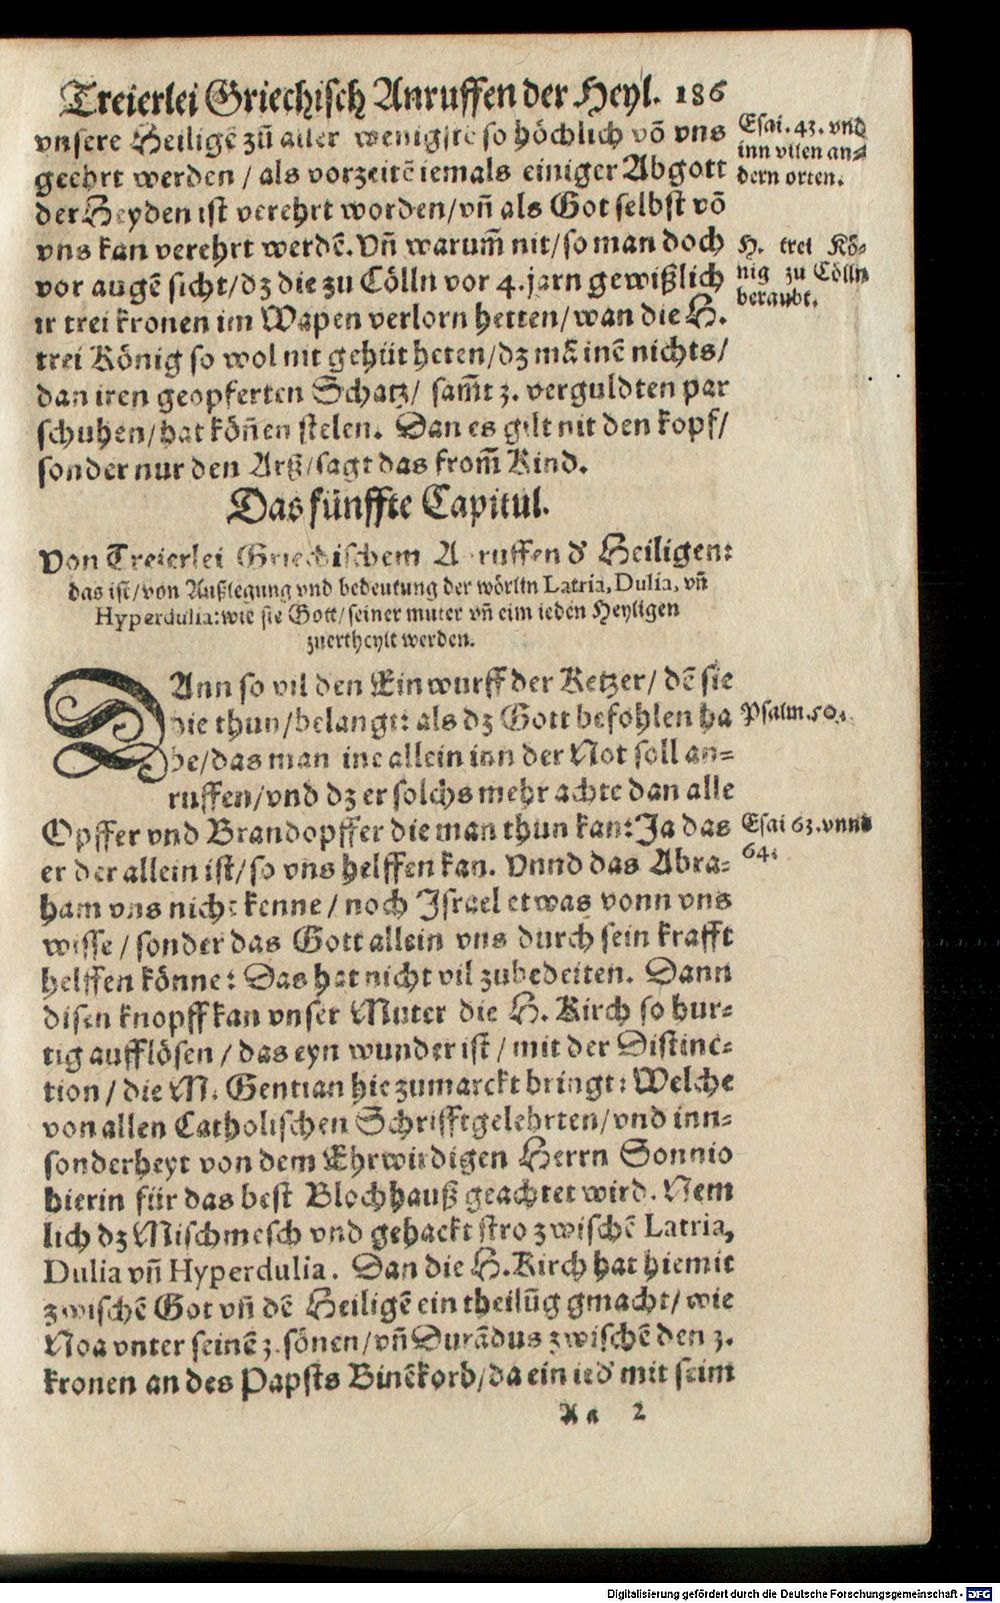 Treierlei Griechisch Anruffen der Heyl. 186
vnsere Heiligē zū aller wenigste so höchlich vō vns
geehrt werden / als vorzeitē iemals einiger Abgott
der Heyden ist verehrt worden/vn̄ als Got selbst vō
vns kan verehrt werdē. Vn̄ warum̄ nit/so man doch
vor augē sicht/dz die zu Cölln vor 4. jarn gewißlich
ir trei kronen im Wapen verlorn hetten/wan die H.
trei König so wol nit gehüt heten/dz mā inē nichts/
dan iren geopferten Schatz/ sam̄t z. verguldten par
schuhen/hat kön̄en stelen. Dan es gilt nit den kopf/
sonder nur den Arß/sagt das from̄ Kind.
Esai. 43. vnd
inn vilen an=
dern orten.
H. trei Kö=
nig zu Cölln
beraubt.
Das fünffte Capitul.
Von Treierlei Griechischem Anruffen d' Heiligen:
das ist/von Außlegung vnd bedeutung der wörlin Latria, Dulia, vn̄
Hyperdulia: wie sie Gott/seiner muter vn̄ eim ieden Heyligen
zuertheylt werden.
DAnn so vil den Einwurff der Ketzer/ dē sie
hie thun/belangt: als dz Gott befohlen ha
be/das man ine allein inn der Not soll an=
ruffen/vnd dz er solchs mehr achte dan alle
Opffer vnd Brandopffer die man thun kan: Ja das
er der allein ist/so vns helffen kan. Vnnd das Abra=
ham vns nicht kenne / noch Israel etwas vonn vns
wisse / sonder das Gott allein vns durch sein krafft
helffen könne: Das hat nicht vil zubedeiten. Dann
disen knopff kan vnser Muter die H. Kirch so hur=
tig aufflösen / das eyn wunder ist / mit der Distinc=
tion / die M. Gentian hie zumarckt bringt: Welche
von allen Catholischen Schrifftgelehrten/vnd inn=
sonderheyt von dem Ehrwirdigen Herrn Sonnio
hierin für das best Blochhauß geachtet wird. Nem
lich dz Mischmesch vnd gehackt stro zwischē Latria,
Dulia vn̄ Hyperdulia. Dan die H. Kirch hat hiemit
zwischē Got vn̄ dē Heiligē ein theilūg gmacht/ wie
Noa vnter seinē z. sönen/vn̄ Durādus zwischē den z.
kronen an des Papsts Binēkorb/da ein ied' mit seim
Psalm. 50.
Esai 63. vnnd
64.
Aa 2
Digitalisierung gefördert durch die Deutsche Forschungsgemeinschaft - DFG